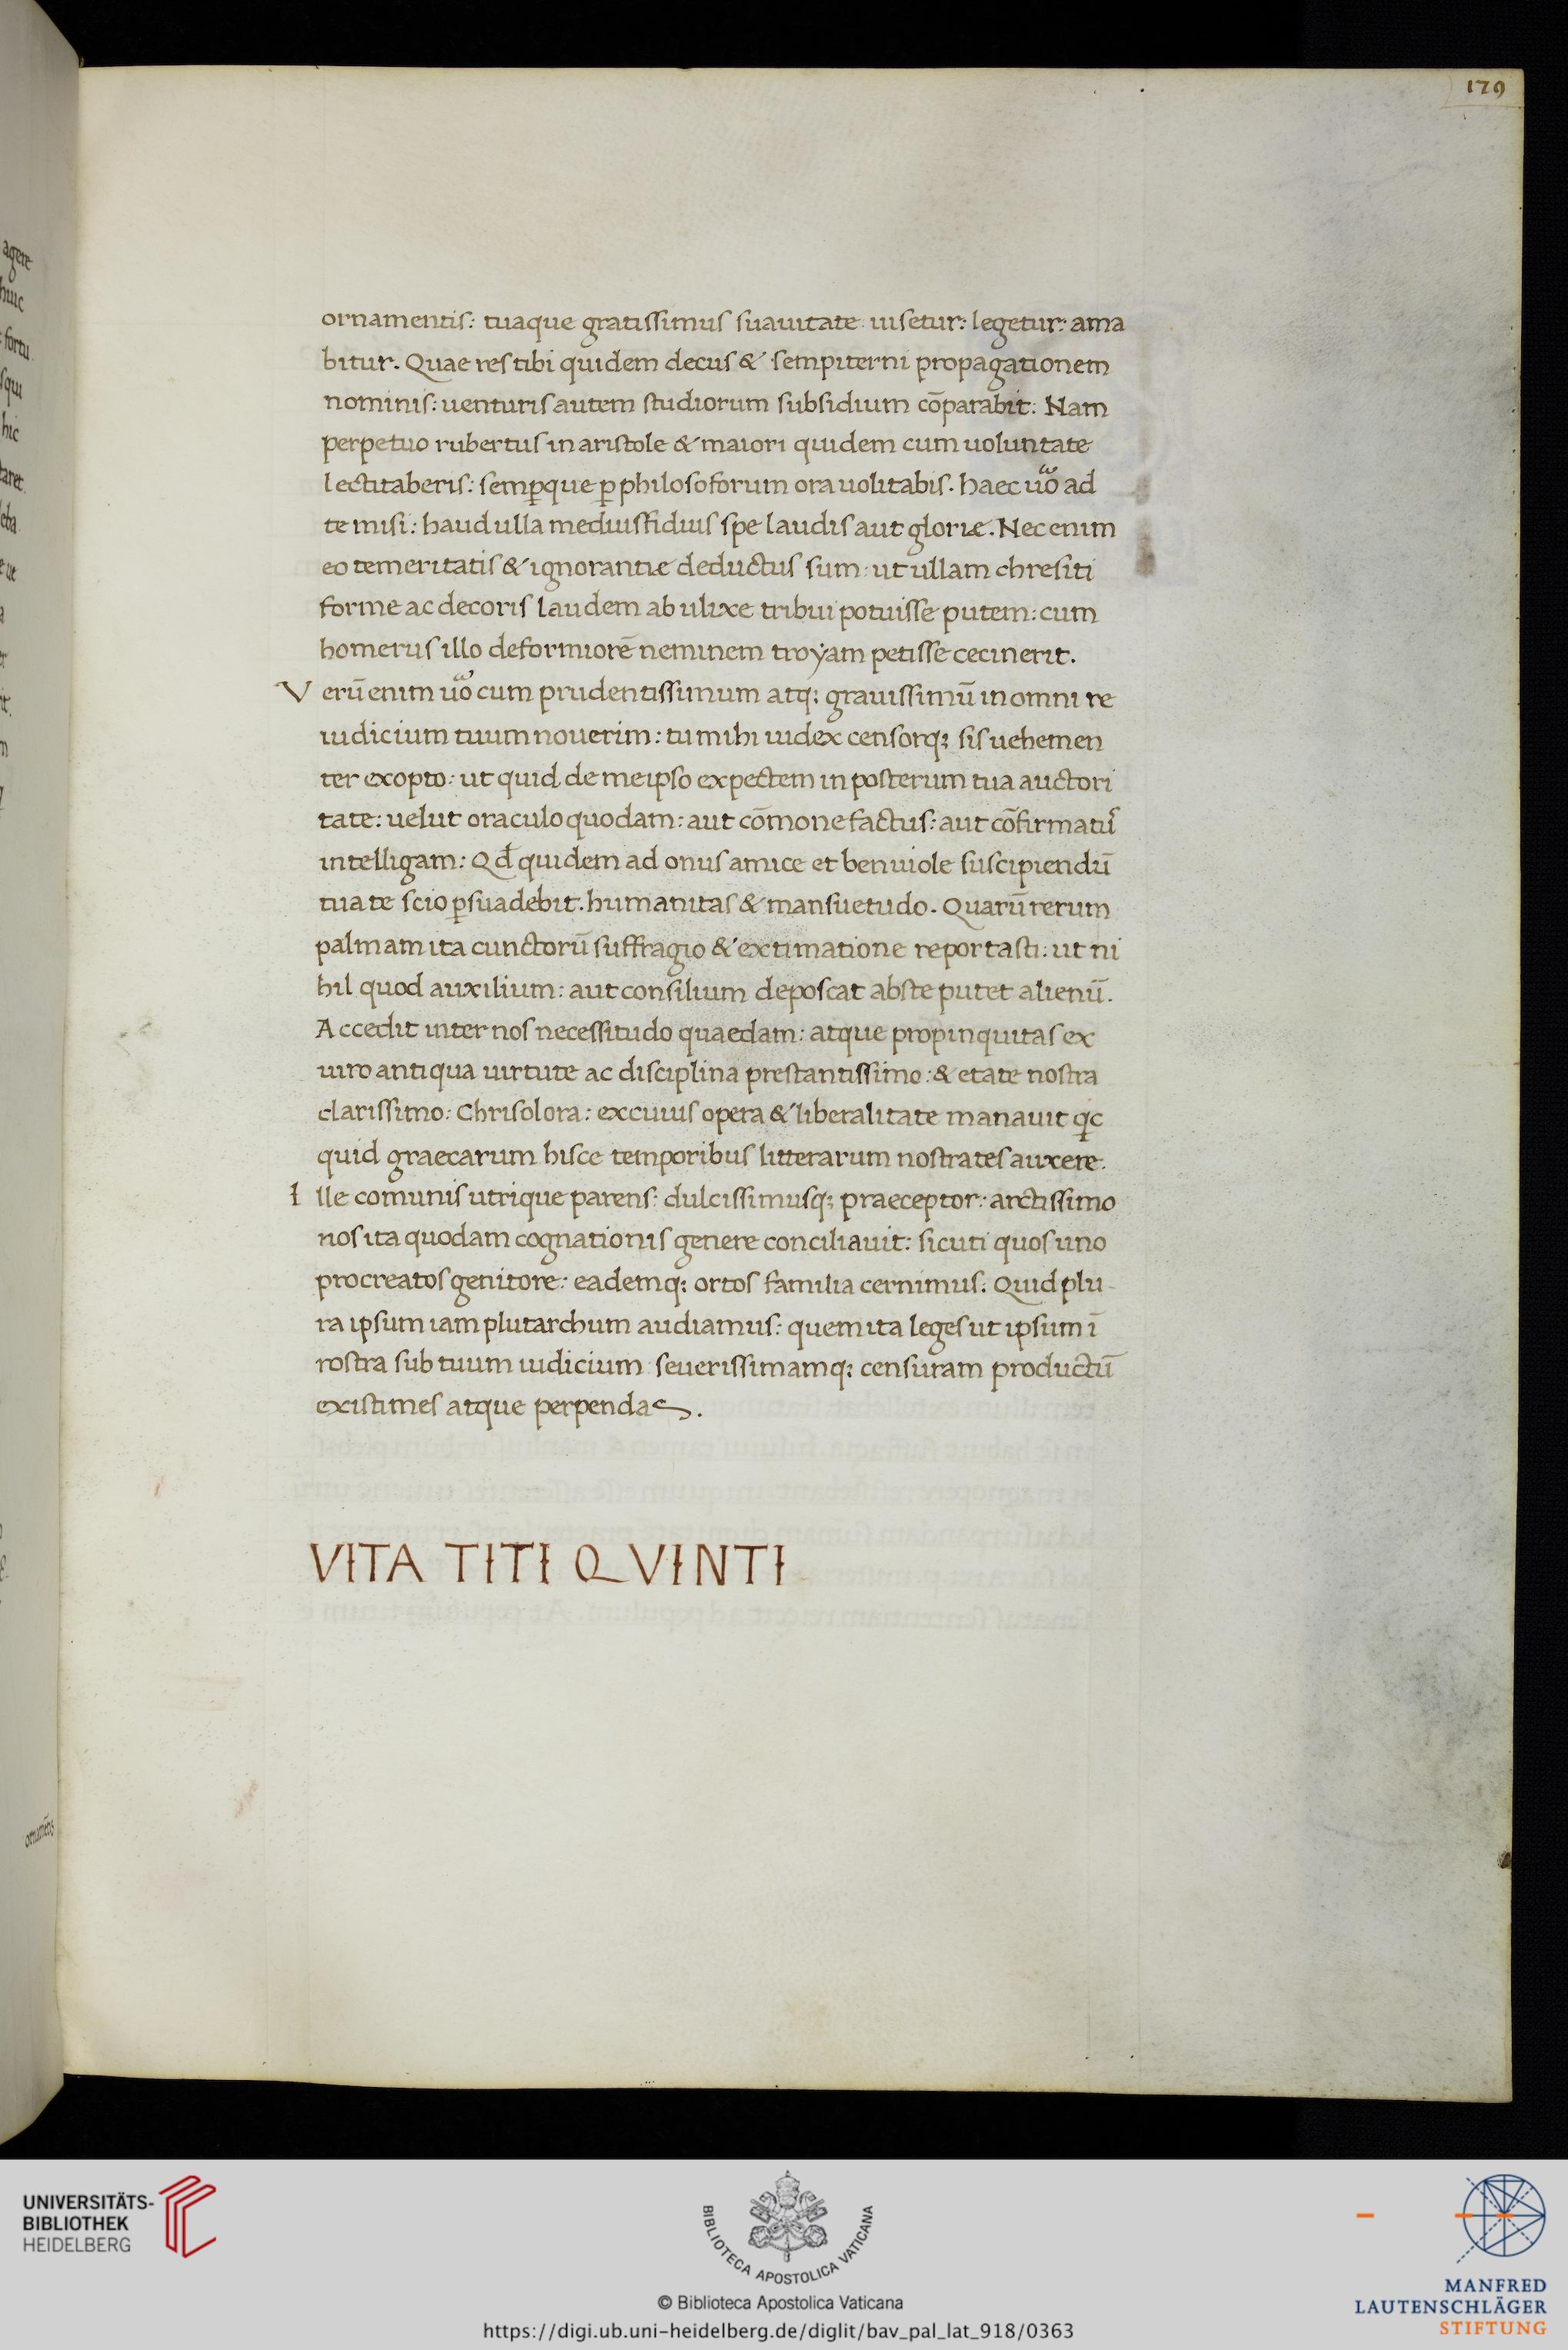 179
ornamentis: tuaque gratissimus suauitate uisetur: legetur: ama
bitur. Quae res tibi quidem decus & sempiterni propagationem
nominis: uenturis autem studiorum subsidium cōparabit: Nam
perpetuo rubertus in aristole & maiori quidem cum uoluntate
lectitaberis: semꝑque ꝑ philosoforum ora uolitabis. haec uo̅ ad
te misi: haud ulla mediusfidius spe laudis aut gloriæ. Nec enim
eo temeritatis & ignorantiæ deductus sum: ut ullam chresiti
forme ac decoris laudem ab ulixe tribui potuisse putem: cum
homerus illo deformiorē neminem troyam petisse cecinerit.
Verū enim uo̅ cum prudentissimum atq; grauissimū in omni re
iudicium tuum nouerim: tu mihi iudex censorq; sis uehemen
ter exopto: ut quid de me ipso expectem in posterum tua auctori
tate: uelut oraculo quodam: aut cōmonefactus: aut cōfirmatus
intelligam: Qd̅ quidem ad onus amice et beniuole suscipiendū
tua te scio ꝑsuadebit. humanitas & mansuetudo. Quarū rerum
palmam ita cunctorū suffragio & extimatione reportasti: ut ni
hil quod auxilium: aut consilium deposcat abs te putet alienū.
Accedit inter nos necessitudo quaedam: atque propinquitas ex
uiro antiqua uirtute ac disciplina prestantissimo: & etate nostra
clarissimo: Chrisolora: ex cuius opera & liberalitate manauit qc
quid graecarum hisce temporibus litterarum nostrates auxere.
Ille comunis utrique parens: dulcissimusq; praeceptor: arctissimo
nos ita quodam cognationis genere conciliauit: sicuti quos uno
procreatos genitore: eademq; ortos familia cernimus. Quid plu-
ra ipsum iam plutarchum audiamus: quem ita leges ut ipsum ī
rostra sub tuum iudicium seuerissimamq; censuram productū
existimes atque perpendas.
VITA TITI QVINTI
UNIVERSITÄTS-
BIBLIOTHEK
HEIDELBERG
BIBLIOTECA APOSTOLICA VATICANA
© Biblioteca Apostolica Vaticana
https://digi.ub.uni-heidelberg.de/diglit/bav_pal_lat_918/0363
MANFRED
LAUTENSCHLÄGER
STIFTUNG